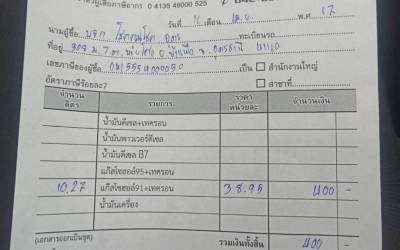 ผู้เสียภาษีอากร 0 4135 49000 525
วันที่ 11 เดือน เม.ย. พ.ศ. 67
นามผู้ซื้อ บจก. ทะเบียนรถ
ที่อยู่ 303 ม.7 อ. จ. อุดรธานี
เลขภาษีของผู้ซื้อ เป็น สำนักงานใหญ่
อัตราภาษีร้อยละ7 สาขาที่
จำนวน ลิตร รายการ ราคา หน่วยละ จำนวนเงิน
น้ำมันดีเซล+เทครอน
น้ำมันพาวเวอร์ดีเซล
น้ำมันดีเซล B7
แก๊สโซฮอล์95+เทครอน
10.27 แก๊สโซฮอล์91+เทครอน 38.95 400 -
น้ำมันเครื่อง
(เอกสารออกเป็นชุด) รวมเงินทั้งสิ้น 400 -